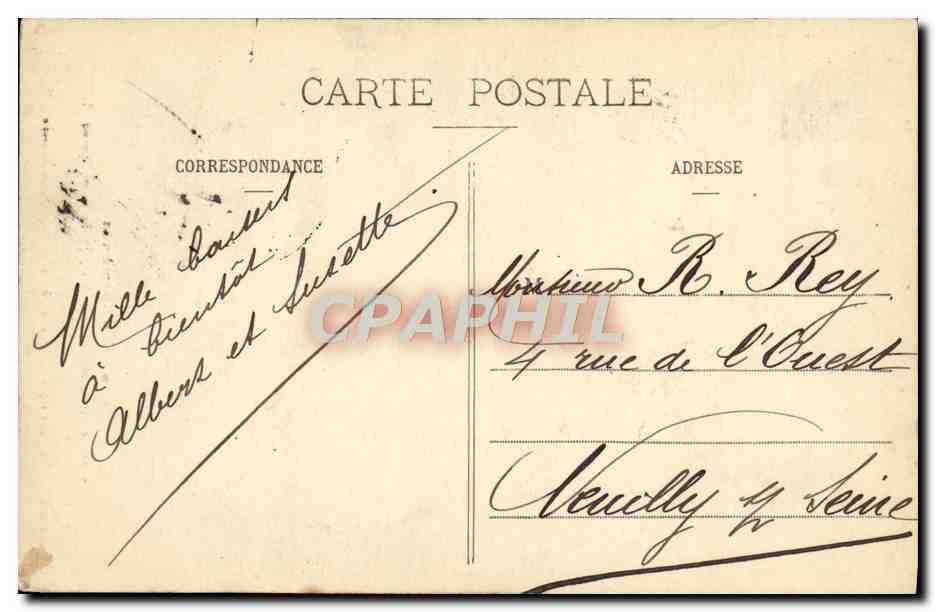 CARTE POSTALE
CORRESPONDANCE
Mille baisers
à bientôt
Albert et Susette
ADRESSE
Monsieur R. Rey
4 rue de l'Ouest
Neuilly s/ Seine
CPAPHIL